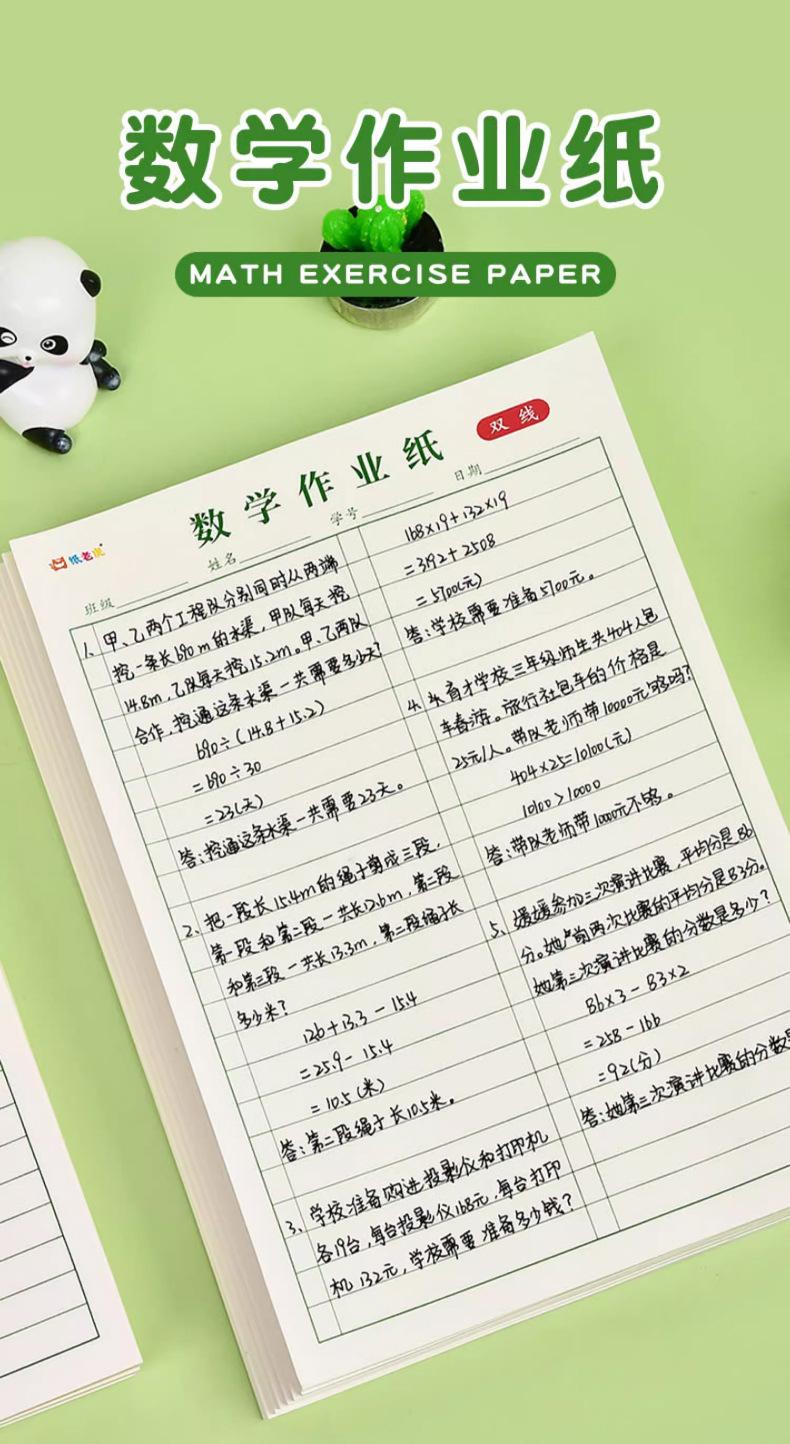 数学作业纸
MATH EXERCISE PAPER
双线
数学作业纸
纸老虎
班级
姓名
学号
日期
1、甲、乙两个工程队分别同时从两端
挖一条长690m的水渠,甲队每天挖
14.8m,乙队每天挖15.2m。甲、乙两队
合作,挖通这条水渠一共需要多少天?
690÷(14.8+15.2)
=690÷30
=23(天)
答:挖通这条水渠一共需要23天。
2、把一段长15.4m的绳子剪成三段,
第一段和第二段一共长12.6m,第二段
和第三段一共长13.3m,第二段绳子长
多少米?
12.6+13.3-15.4
=25.9-15.4
=10.5(米)
答:第二段绳子长10.5米。
3、学校准备购进投影仪和打印机
各19台,每台投影仪168元,每台打印
机132元,学校需要准备多少钱?
168×19+132×19
=3192+2508
=5700(元)
答:学校需要准备5700元。
4、育才学校三年级师生共404人包
车春游。旅行社包车的价格是
25元/人。带队老师带10000元够吗?
404×25=10100(元)
10100>10000
答:带队老师带10000元不够。
5、媛媛参加三次演讲比赛,平均分是86
分。她前两次比赛的平均分是83分。
她第三次演讲比赛的分数是多少?
86×3-83×2
=258-166
=92(分)
答:她第三次演讲比赛的分数是